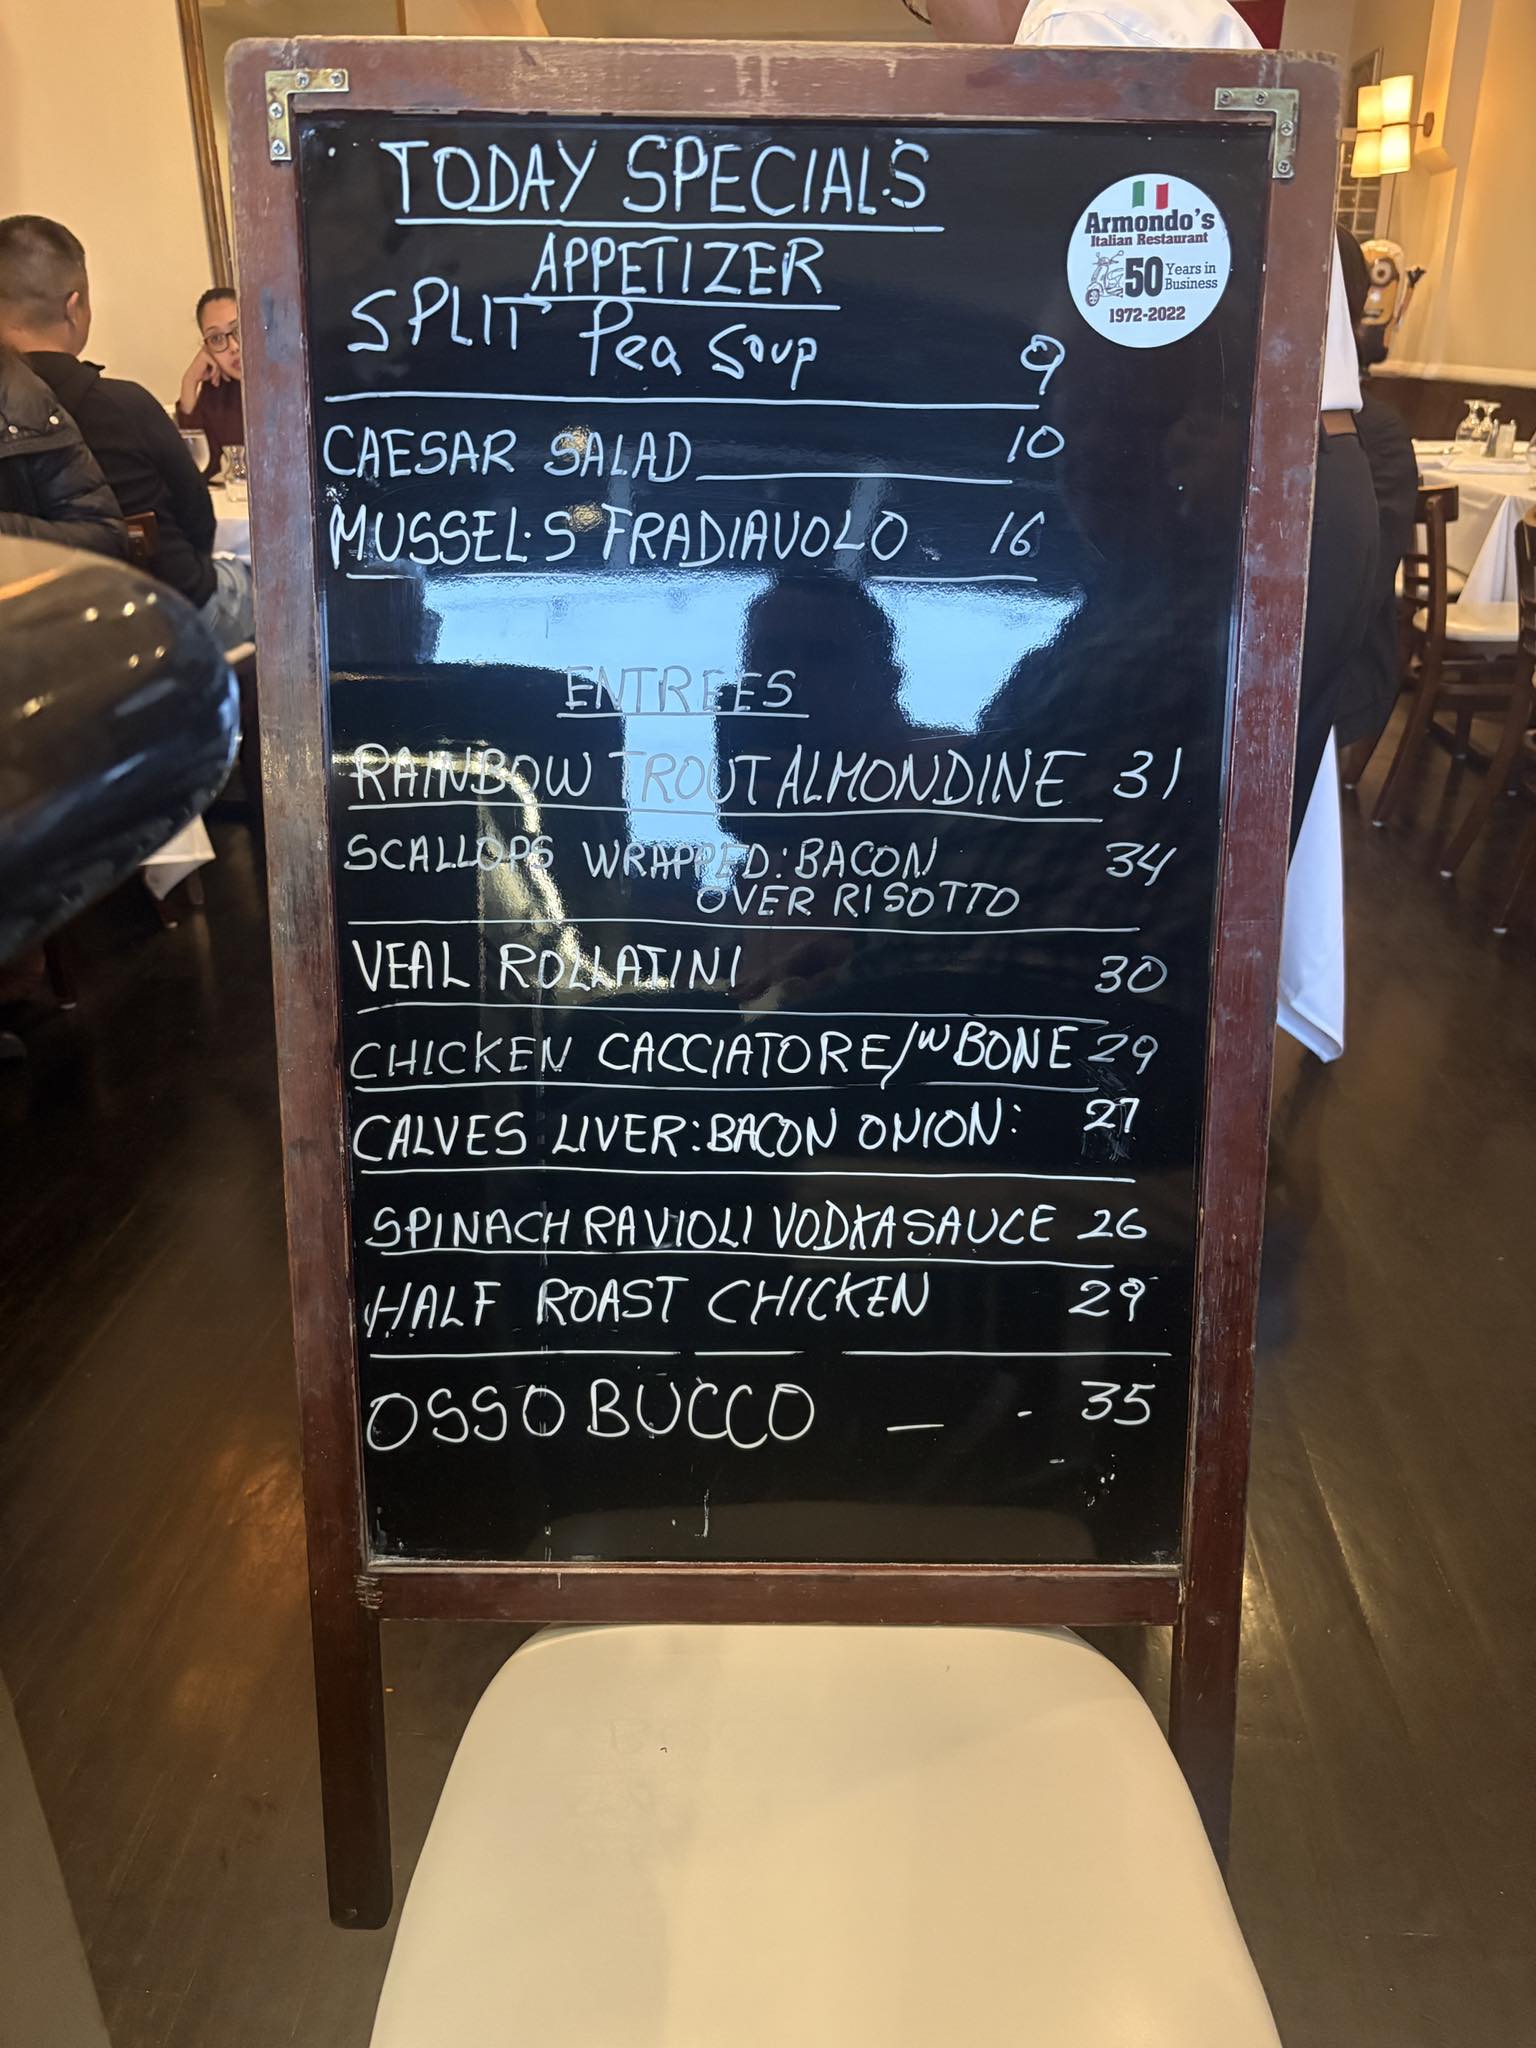 TODAY SPECIALS
Armondo's
Italian Restaurant
50 Years in Business
1972-2022
APPETIZER
SPLIT Pea Soup 9
CAESAR SALAD 10
MUSSELS FRADIAVOLO 16
ENTREES
RAINBOW TROUT ALMONDINE 31
SCALLOPS WRAPPED: BACON 34
OVER RISOTTO
VEAL ROLLATINI 30
CHICKEN CACCIATORE/W BONE 29
CALVES LIVER: BACON ONION: 27
SPINACH RAVIOLI VODKA SAUCE 26
HALF ROAST CHICKEN 29
OSSO BUCCO — - 35